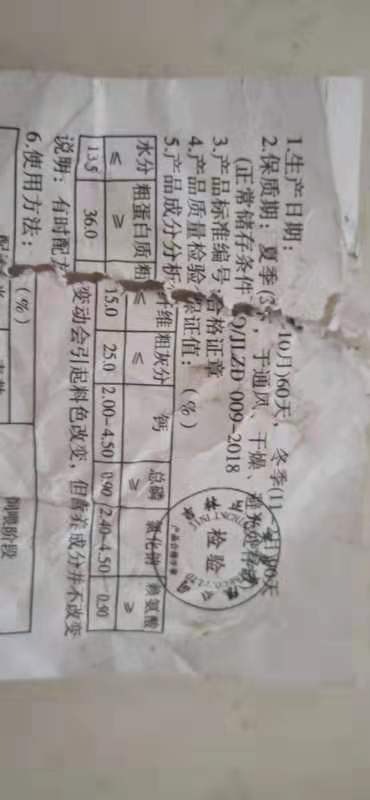 1.生产日期：
2.保质期：夏季(3 10月)60天，冬季(11
(正常储存条件 于通风、干燥、
3.产品标准编号 Q/JLZD 009-2018
4.产品质量检验 合格证章
5.产品成分分析保证值：(%)
水分 粗蛋白质 粗纤维 粗灰分 钙 总磷 氯化钠 赖氨酸
≤ ≥ ≤ ≤ ≥ ≥
13.5 36.0 15.0 25.0 2.00-4.50 0.90 2.40-4.50 0.50
说明：有时配方变动会引起料色改变，但营养成分并不改变
6.使用方法：
(%)
饲喂阶段
检验
产品合格